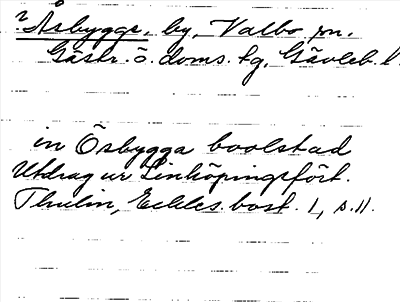 ? Åsbygge, by, Valbo sn.
Gästr. ö. doms. tg, Gävleb. l.
in Ösbygga boolstad
Utdrag ur Linköpingsfört.
Thulin, Eckles. bost. 1, s. 11.